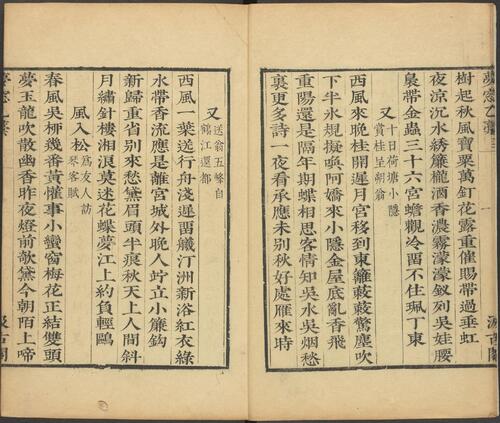 夢窗乙稾 三
樹起秋風寶粟萬釘花露重催賜帶過垂虹
夜涼沉水繡簾櫳酒香濃霧濛濛釵列吳娃腰
褭帶金蟲三十六宮蟾觀冷畱不住珮丁東
又
十日荷塘小隱
賞桂呈朔翁
西風來晚桂開遲月宮移到東籬蔌蔌驚塵吹
下半氷規擬喚阿嬌來小隱金屋底亂香飛
重陽還是隔年期蝶相思客情知吳水吳烟愁
裏更多詩一夜看承應未別秋好處雁來時
汲古閣
又
送翁五峰自
鶴江還都
西風一葉送行舟淺遲畱艤汀洲新浴紅衣綠
水帶香流應是離宮城外晚人竚立小簾鈎
新歸重省別來愁黛眉頭半痕秋天上人間斜
月繡針樓湘浪莫迷花蝶夢江上約負輕鷗
風入松
爲友人訪
琴客賦
春風吳柳幾番黃懽事小蠻窗梅花正結雙頭
夢玉龍吹散幽香昨夜燈前歌黛今朝陌上啼
夢窗乙稾
汲古閣